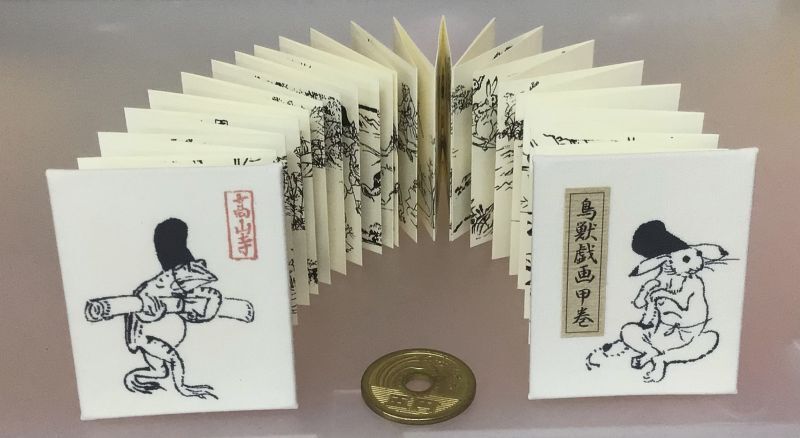 鳥獣戯画甲巻
高山寺